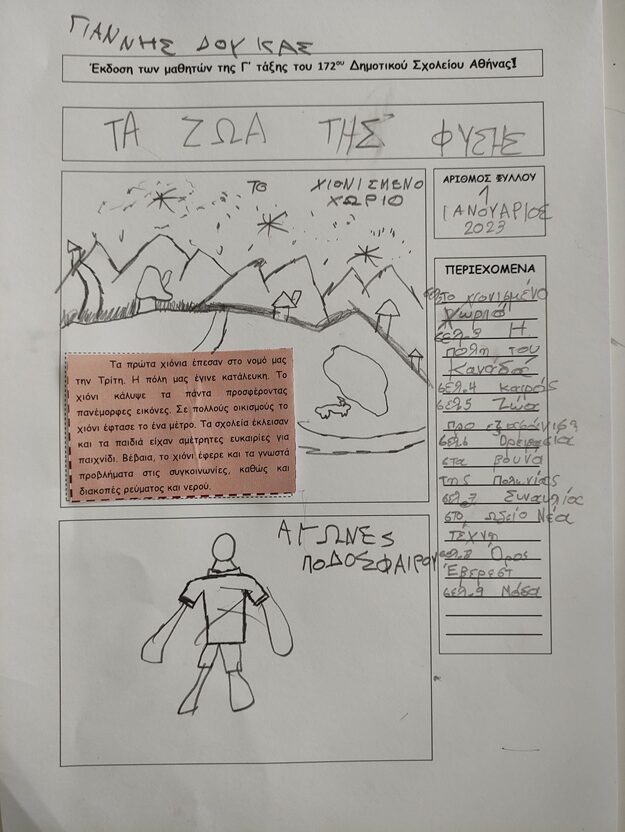 ΓΙΑΝΝΗΣ ΔΟΥΚΑΣ
Έκδοση των μαθητών της Γ΄ τάξης του 172ου Δημοτικού Σχολείου Αθήνας!
ΤΑ ΖΩΑ ΤΗΣ ΦΥΣΗΣ
ΤΟ ΧΙΟΝΙΣΜΕΝΟ
ΧΩΡΙΟ
Τα πρώτα χιόνια έπεσαν στο νομό μας
την Τρίτη. Η πόλη μας έγινε κατάλευκη. Το
χιόνι κάλυψε τα πάντα προσφέροντας
πανέμορφες εικόνες. Σε πολλούς οικισμούς το
χιόνι έφτασε το ένα μέτρο. Τα σχολεία έκλεισαν
και τα παιδιά είχαν αμέτρητες ευκαιρίες για
παιχνίδι. Βέβαια, το χιόνι έφερε και τα γνωστά
προβλήματα στις συγκοινωνίες, καθώς και
διακοπές ρεύματος και νερού.
ΑΓΩΝΕΣ
ΠΟΔΟΣΦΑΙΡΟΥ
ΑΡΙΘΜΟΣ ΦΥΛΛΟΥ
1
ΙΑΝΟΥΑΡΙΟΣ
2023
ΠΕΡΙΕΧΟΜΕΝΑ
χιονισμένο
χωριό
Η
πόλη του
Καναδά
σελ.4 καιρός
σελ.5 Ζώα
προ
σελ.6 Ορειβασία
στα βουνά
της Πολωνίας
σελ.7 Συναυλίας
στο ωδείο Νέα
τέχνη
σελ.8 Όρος
Έβερεστ
σελ.9